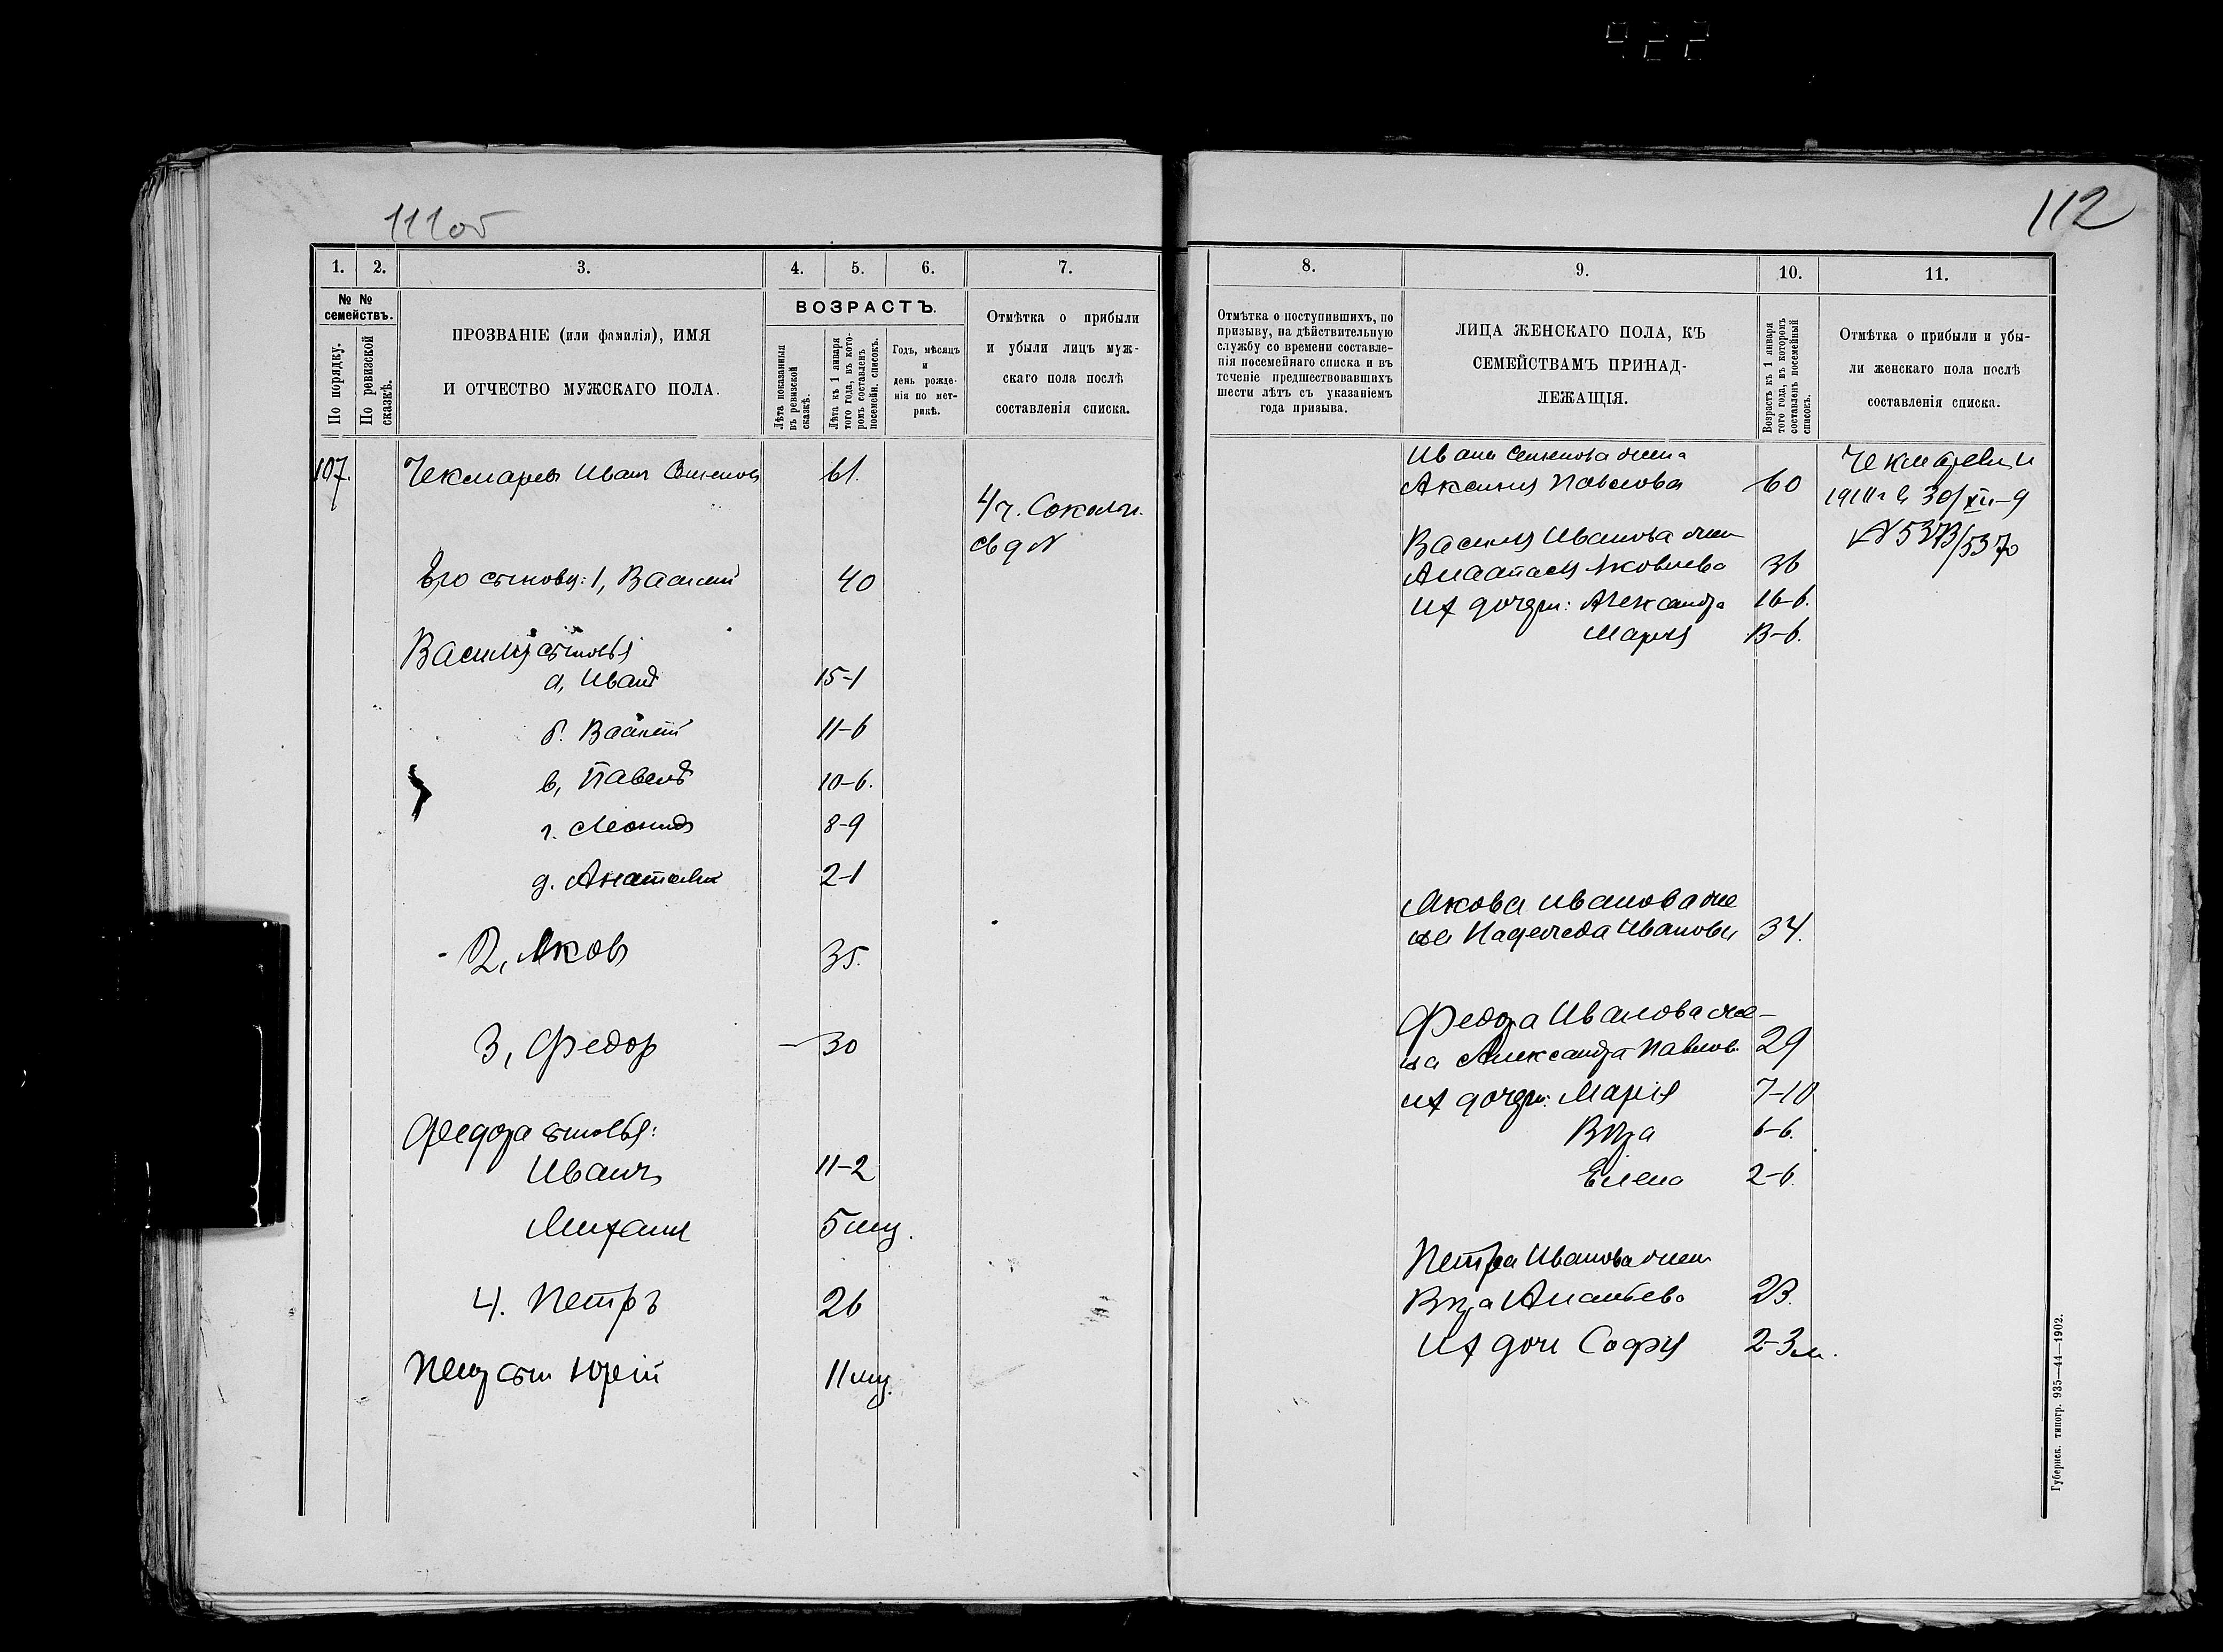 922
111об
112
1.
2.
3.
4.
5.
6.
7.
№ №
семействъ.
По порядку.
По ревизской
сказкѣ.
ПРОЗВАНІЕ (или фамилія), ИМЯ
И ОТЧЕСТВО МУЖСКАГО ПОЛА.
ВОЗРАСТЪ.
Лѣта показанныя
въ ревизской
сказкѣ.
Лѣта къ 1 января
того года, въ кото-
ромъ составленъ
посемейн. списокъ.
Годъ, мѣсяцъ
и
день рожде-
нія по мет-
рикѣ.
Отмѣтка о прибыли
и убыли лицъ муж-
скаго пола послѣ
составленія списка.
107. Чекмарев Иван Семенов 61.
4 ч. Сокольн.
Его сыновья: 1, Василій 40
Василія сыновья
а, Иванъ 15-1
б. Василій 11-6
в, Павелъ 10-6.
г. Леонидъ 8-9
д. Анатолій 2-1
2, Яковъ 35.
3, Федор 30
Федора сыновья:
Иванъ 11-2
Михаил 5 мц.
4. Петръ 26
Петр сын Юрій 11 мц.
8.
9.
10.
11.
Отмѣтка о поступившихъ, по
призыву, на дѣйствительную
службу со времени составле-
нія посемейнаго списка и въ
теченіе предшествовавшихъ
шести лѣтъ съ указаніемъ
года призыва.
ЛИЦА ЖЕНСКАГО ПОЛА, КЪ
СЕМЕЙСТВАМЪ ПРИНАД-
ЛЕЖАЩІЯ.
Возрастъ къ 1 января
того года, въ которомъ
составленъ посемейный
списокъ.
Отмѣтка о прибыли и убы-
ли женскаго пола послѣ
составленія списка.
Ивана Семенова жена
Аксинья Павлова 60
Василия Иванова жен
Анастасия Яковлева 36
их дочери: Александра 16-6.
Мария 13-6.
Якова Иванова же
на Надежда Иванова 34.
Федора Иванова же-
на Александра Павлов. 29
их дочери: Марія 7-10
Вѣра 6-6.
Елена 2-6.
Петра Иванова жен
Вѣра 23.
их доч София 2-3 м.
№ 5373/5370
Губернск. типогр. 935—44—1902.